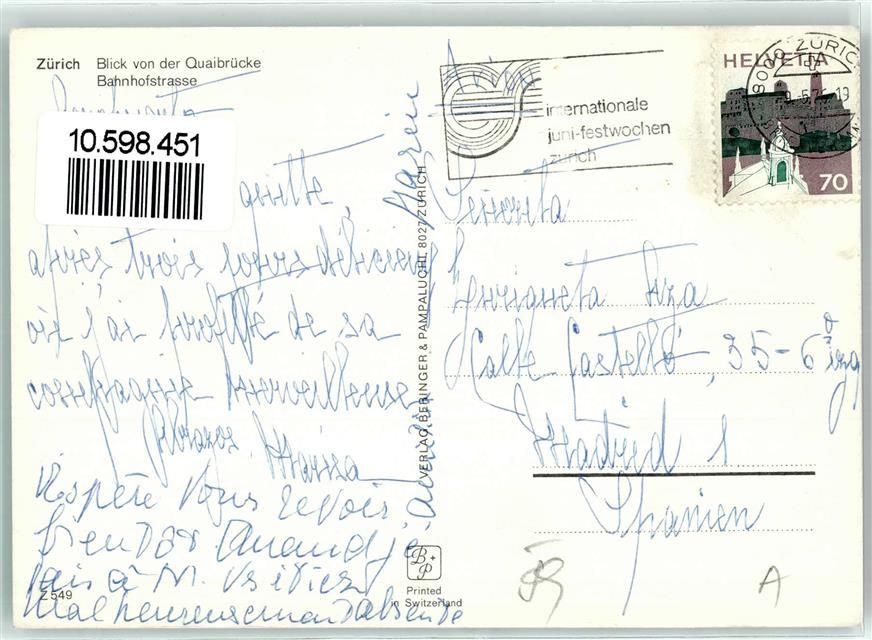 Zürich Blick von der Quaibrücke
Bahnhofstrasse
10.598.451
quitte,
après trois jours délicieux
où j'ai profité de sa
compagnie merveilleuse
Abrazos,
J'espère vous revoir
bientôt Quand je
à M. Vs étiez
malheureusement absente
Z 549
VERLAG BERINGER & PAMPALUCHI, 8027 ZÜRICH
B+P
Printed
in Switzerland
Avion
internationale
juni-festwochen
zürich
8000 ZÜRICH
HELVETIA
70
Señorita
Enriqueta Aza
Calle Castelló, 35-6º izq
Madrid 1
Spanien
A